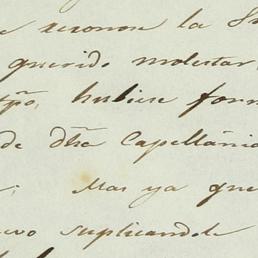 la
querido molestar
tpo, hubiese for
de dha Capellania
Mas ya que
suplicandole